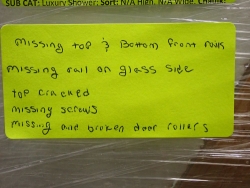 SUB CAT: Luxury Shower; Sort: N/A High, N/A Wide,
missing top & Bottom front rails
missing rail on glass side
top cracked
missing screws
missing and broken door rollers